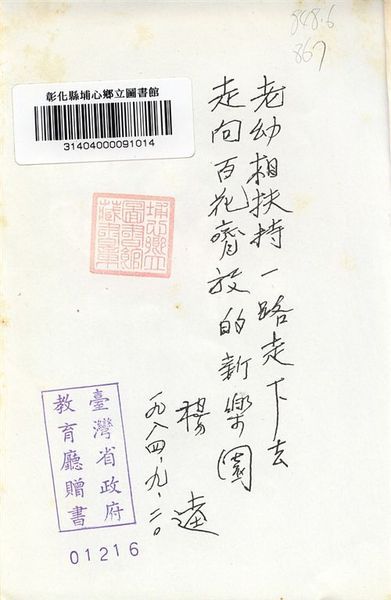 848.6
867
彰化縣埔心鄉立圖書館
31404000091014
老幼相扶持一路走下去
走向百花齊放的新樂園
楊逵
一九八四.九.二〇
埔心鄉立
圖書館
藏書章
臺灣省政府
教育廳贈書
01216